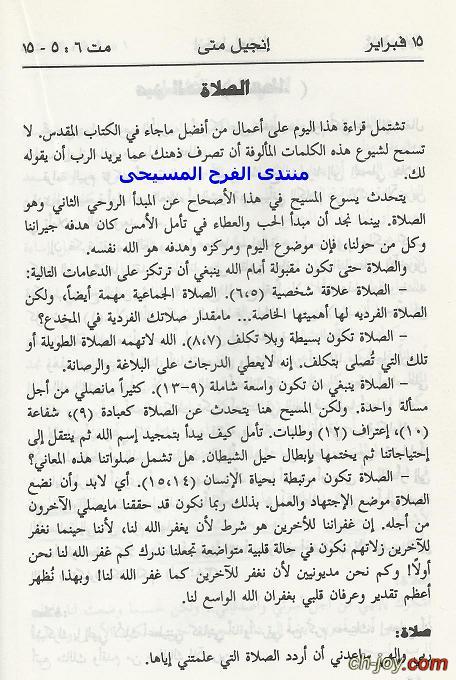 ١٥ فبراير إنجيل متى مت ٦ : ٥ - ١٥
الصلاة
تشتمل قراءة هذا اليوم على أعمال من أفضل ماجاء في الكتاب المقدس. لا
تسمح لشيوع هذه الكلمات المألوفة أن تصرف ذهنك عما يريد الرب أن يقوله
لك.
منتدى الفرح المسيحى
يتحدث يسوع المسيح في هذا الأصحاح عن المبدأ الروحي الثاني وهو
الصلاة. بينما نجد أن مبدأ الحب والعطاء في تأمل الأمس كان هدفه جيراننا
وكل من حولنا، فإن موضوع اليوم ومركزه وهدفه هو الله نفسه.
والصلاة حتى تكون مقبولة أمام الله ينبغي أن ترتكز على الدعامات التالية:
– الصلاة علاقة شخصية (٦،٥). الصلاة الجماعية مهمة أيضاً، ولكن
الصلاة الفرديه لها أهميتها الخاصة... مامقدار صلاتك الفردية في المخدع؟
– الصلاة تكون بسيطة وبلا تكلف (٨،٧). الله لاتهمه الصلاة الطويلة أو
تلك التي تُصلى بتكلف. إنه لايعطي الدرجات على البلاغة والرصانة.
– الصلاة ينبغي ان تكون واسعة شاملة (٩-١٣). كثيراً مانصلي من أجل
مسألة واحدة. ولكن المسيح هنا يتحدث عن الصلاة كعبادة (٩)، شفاعة
(١٠)، إعتراف (١٢) وطلبات. تأمل كيف يبدأ بتمجيد إسم الله ثم ينتقل إلى
إحتياجاتنا ثم يختمها بإبطال حيل الشيطان. هل تشمل صلواتنا هذه المعاني؟
– الصلاة تكون مرتبطة بحياة الإنسان (١٥،١٤). أي لابد وأن نضع
الصلاة موضع الإجتهاد والعمل. بذلك ربما نكون قد حققنا مايصلي الآخرون
من أجله. إن غفراننا للأخرين هو شرط لأن يغفر الله لنا، لأننا حينما نغفر
للآخرين زلاتهم نكون في حالة قلبية متواضعة تجعلنا ندرك كم غفر الله لنا نحن
أولًا! وكم نحن مديونيين لأن نغفر للآخرين كما غفر الله لنا! وبهذا نُظهر
أعظم تقدير وعرفان قلبي بغفران الله الواسع لنا.
صلاة:
ربي وإلهي ساعدني أن أردد الصلاة التي علمتني إياها.
ch-joy.com